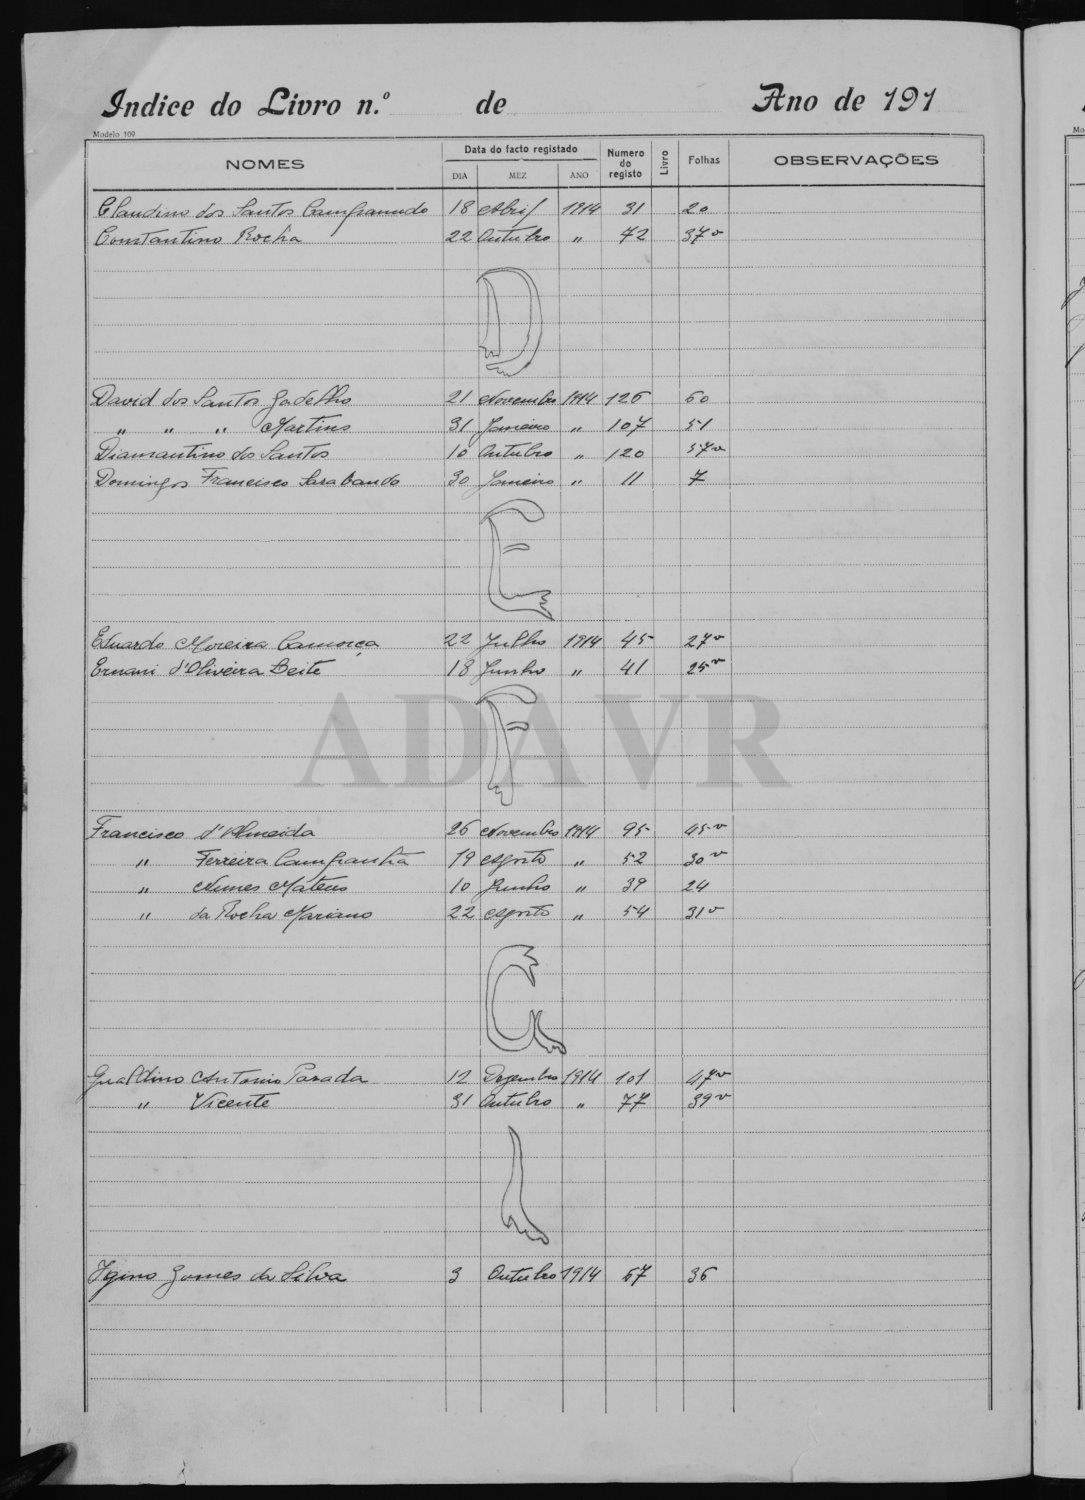 Indice do Livro n.º de Ano de 191
Modelo 109
NOMES Data do facto registado Numero do registo Livro Folhas OBSERVAÇÕES
DIA MEZ ANO
Claudino dos Santos Campanudo 18 Abril 1914 31 20
Constantino Rocha 22 Outubro " 72 37v
D
David dos Santos Gadelho 21 Novembro 1914 126 60
" " " Martins 31 Janeiro " 107 51
Diamantino dos Santos 10 Outubro " 120 57v
Domingos Francisco Sarabando 30 Janeiro " 11 7
E
Eduardo Moreira Camorça 22 Julho 1914 45 27v
Ernani d'Oliveira Leite 18 Junho " 41 25v
F
ADAVR
Francisco d'Almeida 26 Novembro 1914 95 45v
" Ferreira Campanhã 19 Agosto " 52 30v
" Nunes Mateus 10 Junho " 39 24
" da Rocha Mariano 22 Agosto " 54 31v
G
Gualdino Antonio Parada 12 Dezembro 1914 101 47v
" Vicente 31 Outubro " 77 39v
I
Igino Gomes da Silva 3 Outubro 1914 67 36
Mo